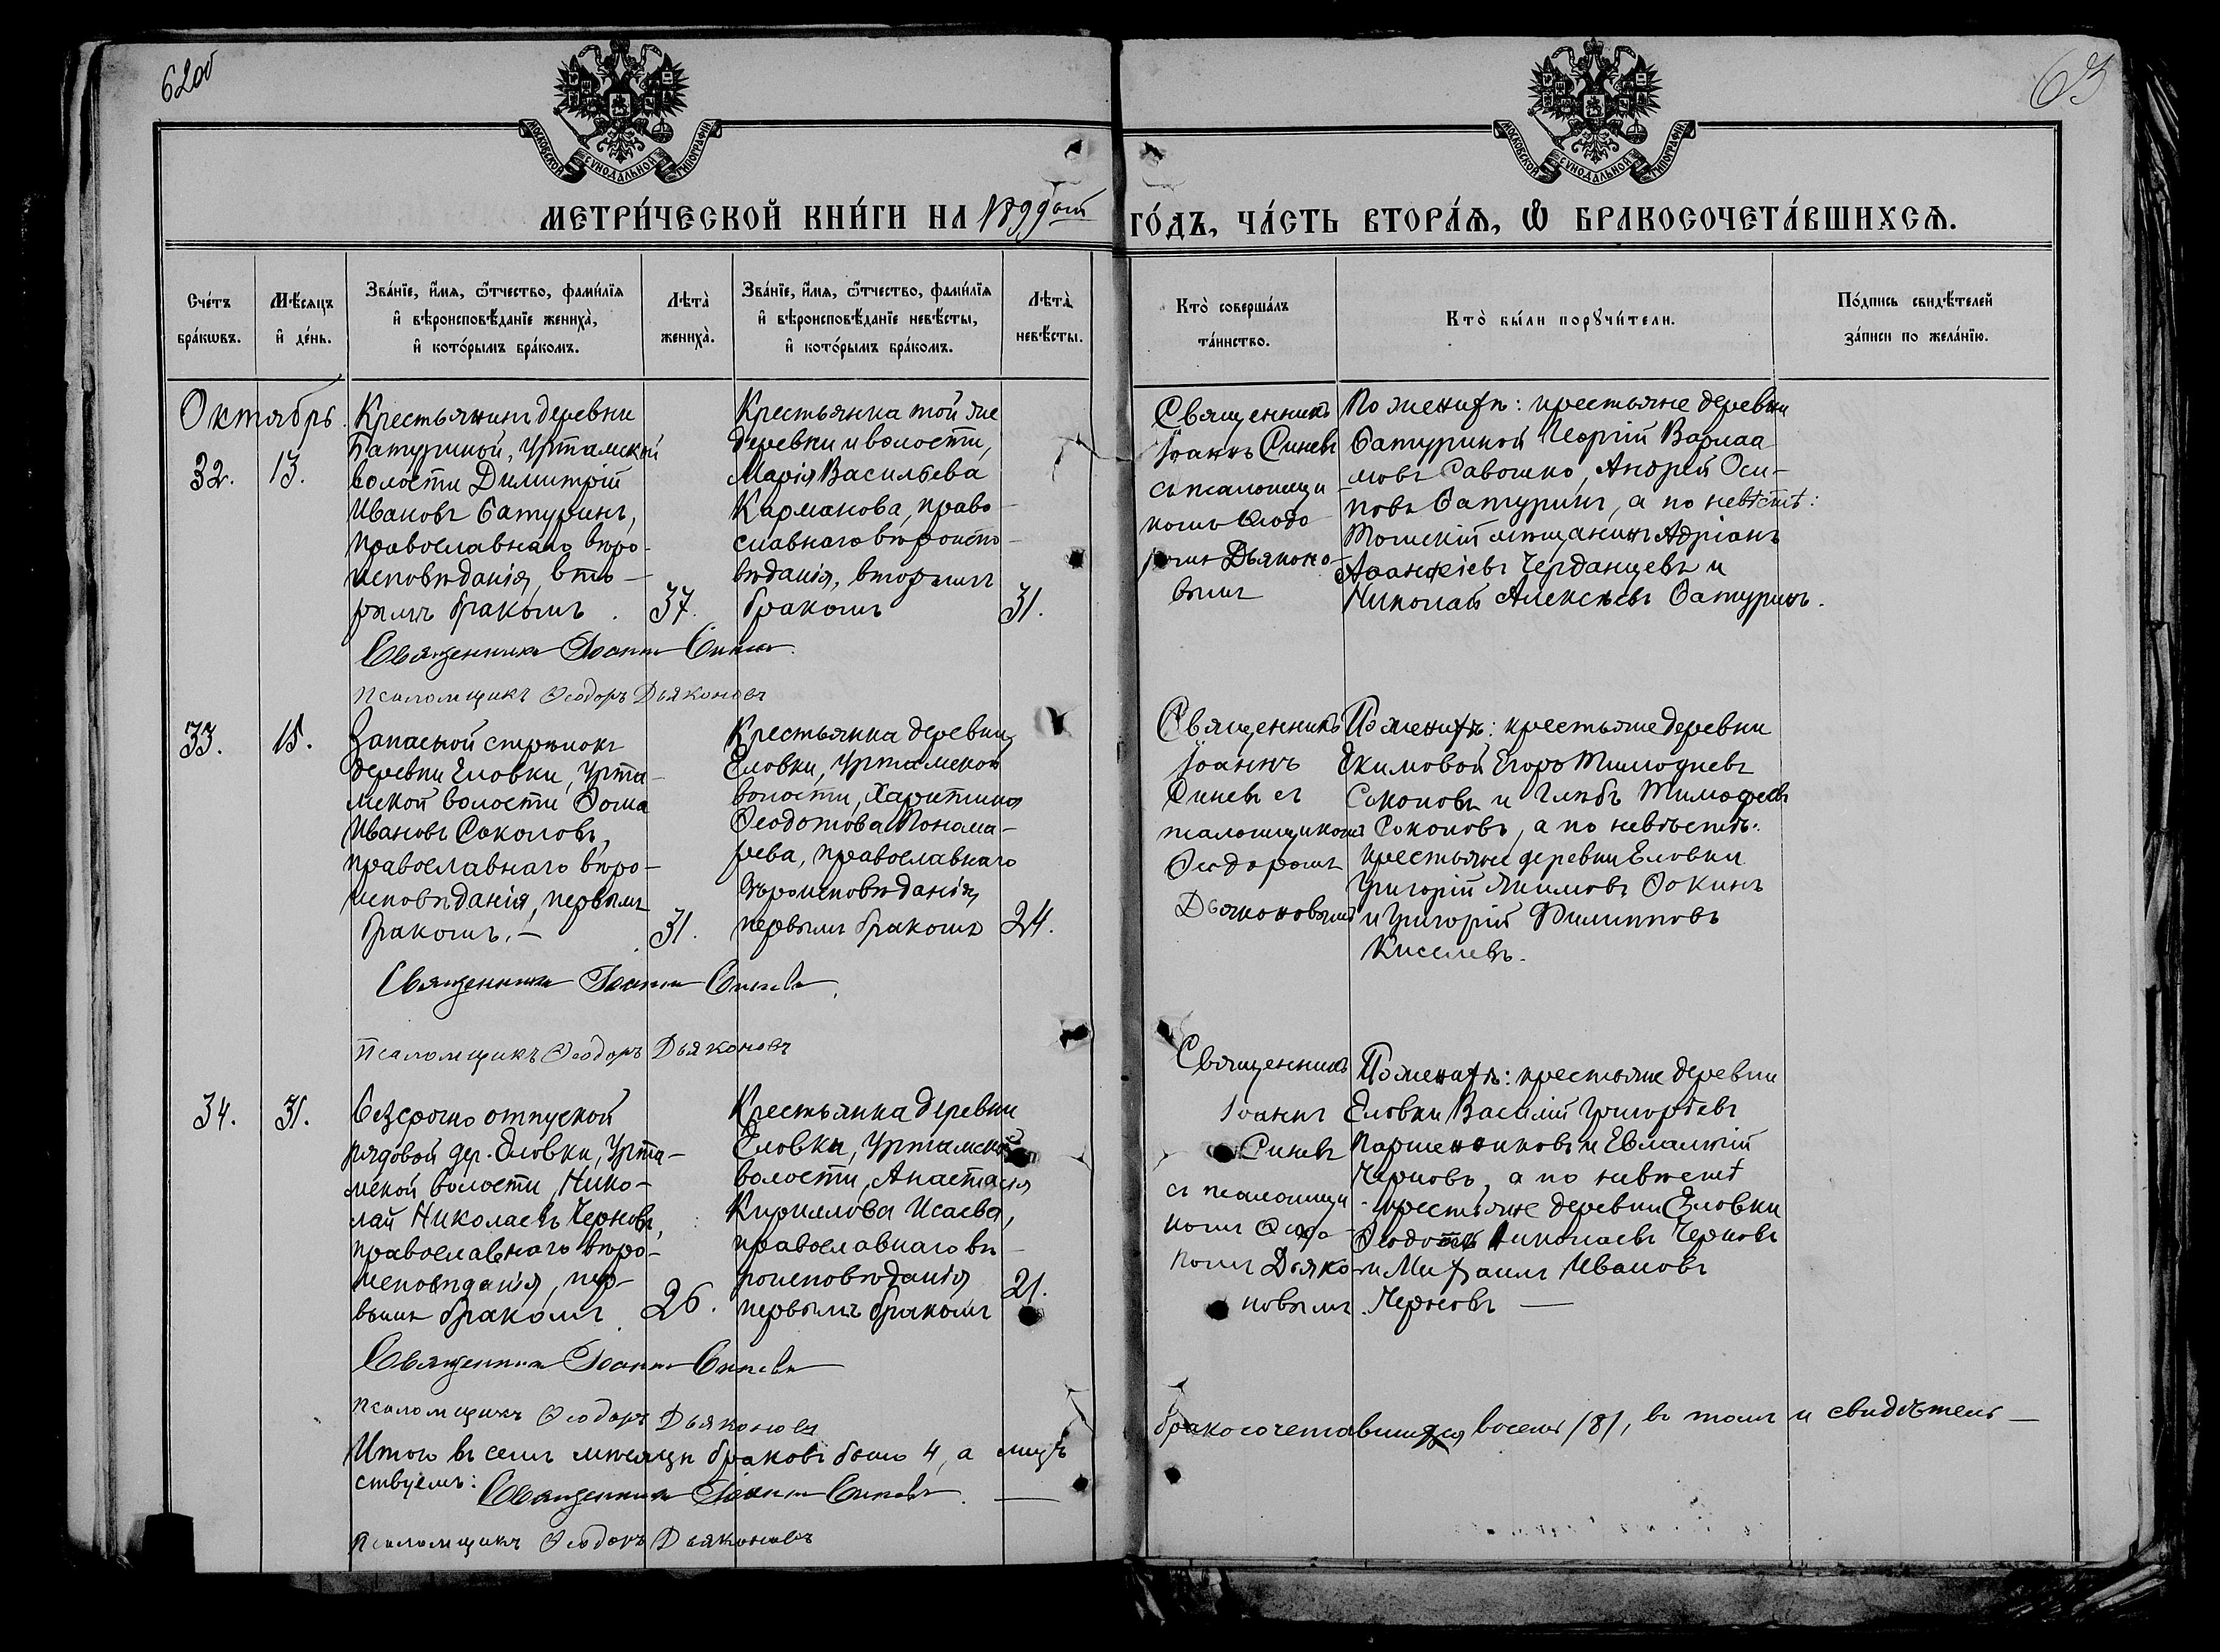 62об
63
МОСКОВСКОЙ СУНОДАЛЬНОЙ ТИПОГРАФІИ
МОСКОВСКОЙ СУНОДАЛЬНОЙ ТИПОГРАФІИ
МЕТРИ́ЧЕСКОЙ КНИ́ГИ НА 1899ый ГО́ДЪ, ЧА́СТЬ ВТОРА́Ѧ, Ѽ БРАКОСОЧЕТА́ВШИХСѦ.
Сче́тъ
бра́кѡвъ.
Мѣ́сяцъ
и҆ де́нь.
Зва́нїе, и҆́мя, ѻ҆́тчество, фами́лїя
и҆ вѣроисповѣ́данїе жениха̀,
и҆ кото́рымъ бра́комъ.
Лѣта̀
жениха̀.
Зва́нїе, и҆́мя, ѻ҆́тчество, фами́лїя
и҆ вѣроисповѣ́данїе невѣ́сты,
и҆ кото́рымъ бра́комъ.
Лѣта̀
невѣ́сты.
Кто̀ соверша́лъ
та́инство.
Кто̀ бы́ли порꙋчи́тели.
По́дпись свидѣ́телей
за́писи по жела́нїю.
Октябрь.
32.
13.
Крестьянинъ деревни
Батуриной, Уртамской
волости Димитрій
Ивановъ Батуринъ,
православнаго вѣро-
исповѣданія, вто-
рымъ бракомъ.
37.
Крестьянка той же
деревни и волости,
Марія Васильева
Карманова, право-
славнаго вѣроиспо-
вѣданія, вторымъ
бракомъ
31.
Священникъ
Іоаннъ Синевъ
съ псаломщи
комъ Ѳеодо-
ромъ Дьяконо-
вымъ
По женихѣ: крестьяне деревни
Батуриной Георгій Варлаа
мовъ Савошко, Андрей Оси-
повъ Батуринъ, а по невѣстѣ:
Томскій мѣщанинъ Адріанъ
Черданцевъ и
Николай Алексѣевъ Батуринъ.
Священникъ Іоаннъ Синевъ
Псаломщикъ Ѳеодоръ Дьяконовъ
33.
15.
Запасной стрѣлокъ
деревни Еловки, Урта-
мской волости Ѳома
Ивановъ Соколовъ,
православнаго вѣро-
исповѣданія, первымъ
бракомъ. —
31.
Крестьянка деревни
Еловки, Уртамской
волости, Харитина
Ѳеодотова Понама-
рева, православнаго
вѣроисповѣданія,
первымъ бракомъ
24.
Священникъ
Іоаннъ
Синевъ съ
псаломщикомъ
Ѳеодоромъ
Дьяконовымъ
По женихѣ: крестьяне деревни
Екимовой Егоръ Тимофеевъ
Соколовъ и Глѣбъ Тимофеевъ
Соколовъ, а по невѣстѣ:
крестьяне деревни Еловки
Григорій Якимовъ Ѳокинъ
и Григорій Филипповъ
Киселевъ.
Священникъ Іоаннъ Синевъ
Псаломщикъ Ѳеодоръ Дьяконовъ
34.
31.
Безсрочно отпускной
рядовой дер. Еловки, Урта-
мской волости, Нико-
лай Николаевъ Черновъ,
православнаго вѣро-
исповѣданія, пер-
вымъ бракомъ.
26.
Крестьянка деревни
Еловки, Уртамской
волости, Анастасія
Кириллова Исаева,
православнаго вѣ-
роисповѣданія
первымъ бракомъ
21.
Священникъ
Іоаннъ
Синевъ
съ псаломщи
комъ Ѳеодо-
ромъ Дьяко-
новымъ.
По женихѣ: крестьяне деревни
Еловки Василій Григорьевъ
Паршенниковъ и Евлампій
Черновъ, а по невѣстѣ
- крестьяне деревни Еловки
Ѳеодотъ Николаевъ Черновъ
и Михаилъ Ивановъ
Черновъ —
Священникъ Іоаннъ Синевъ
Псаломщикъ Ѳеодоръ Дьяконовъ
Итого въ семъ мѣсяцѣ браковъ было 4, а лицъ бракосочетавшихся восемь /8/, въ томъ и свидѣтель-
ствуемъ: Священникъ Іоаннъ Синевъ. —
Псаломщикъ Ѳеодоръ Дьяконовъ